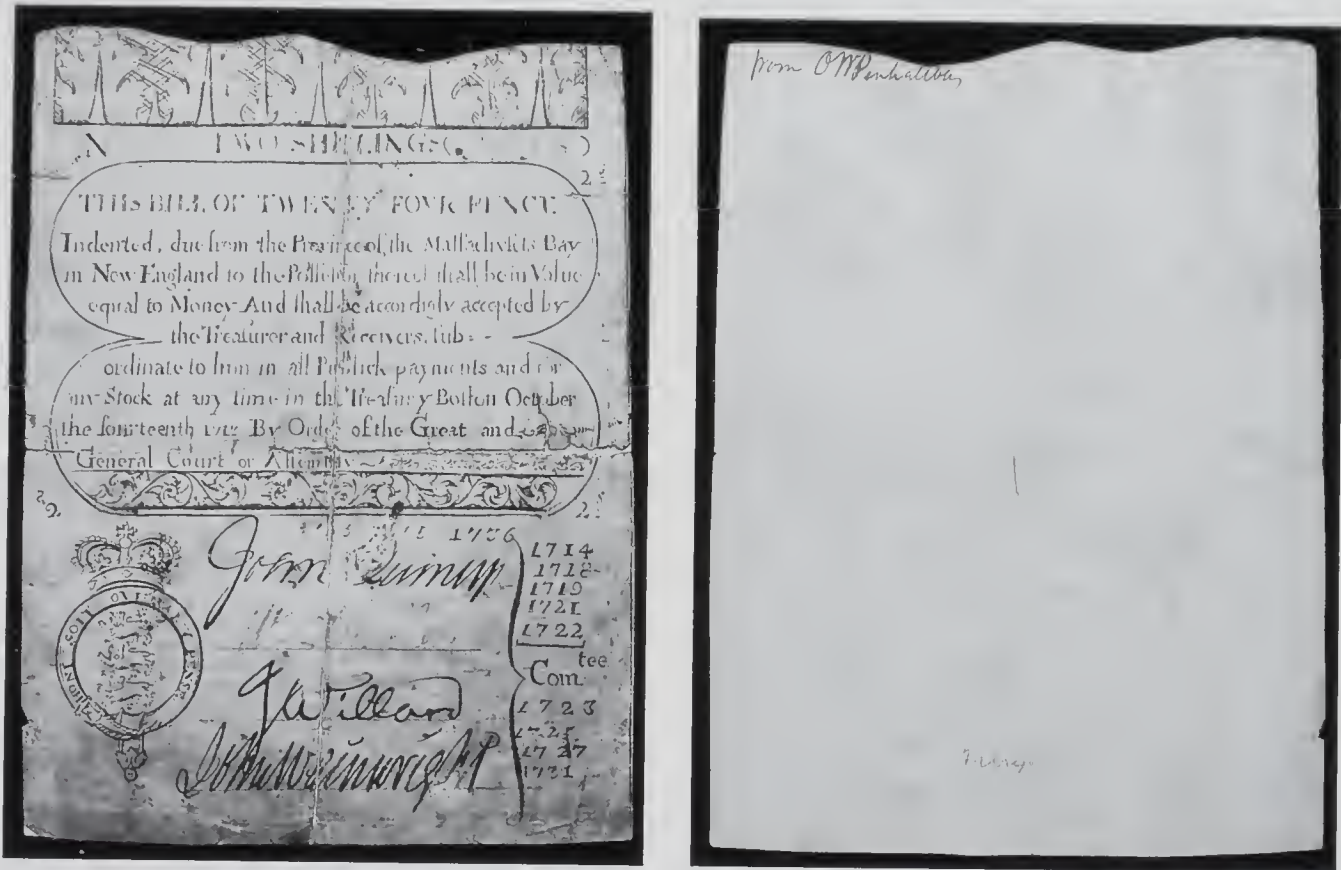 TWO SHILLINGS
2
THIS BILL OF TWENTY FOVR PENCE
Indented, due from the Province of the Massachusets Bay
in New England to the Possessor thereof shall be in Value
equal to Money And shall be accordigly accepted by
the Treasurer and Receivers, sub-
ordinate to him in all Publick payments and for
any Stock at any time in the Treasury Boston October
the fourteenth 1713 By Order of the Great and
General Court or Assembly
22
2
1736
John Quincy
J Willard
John Wainwright
HONI SOIT QVI MAL Y PENSE
1714
1718
1719
1721
1722
Com tee
1723
1725
1727
1731
from O W Penhallow